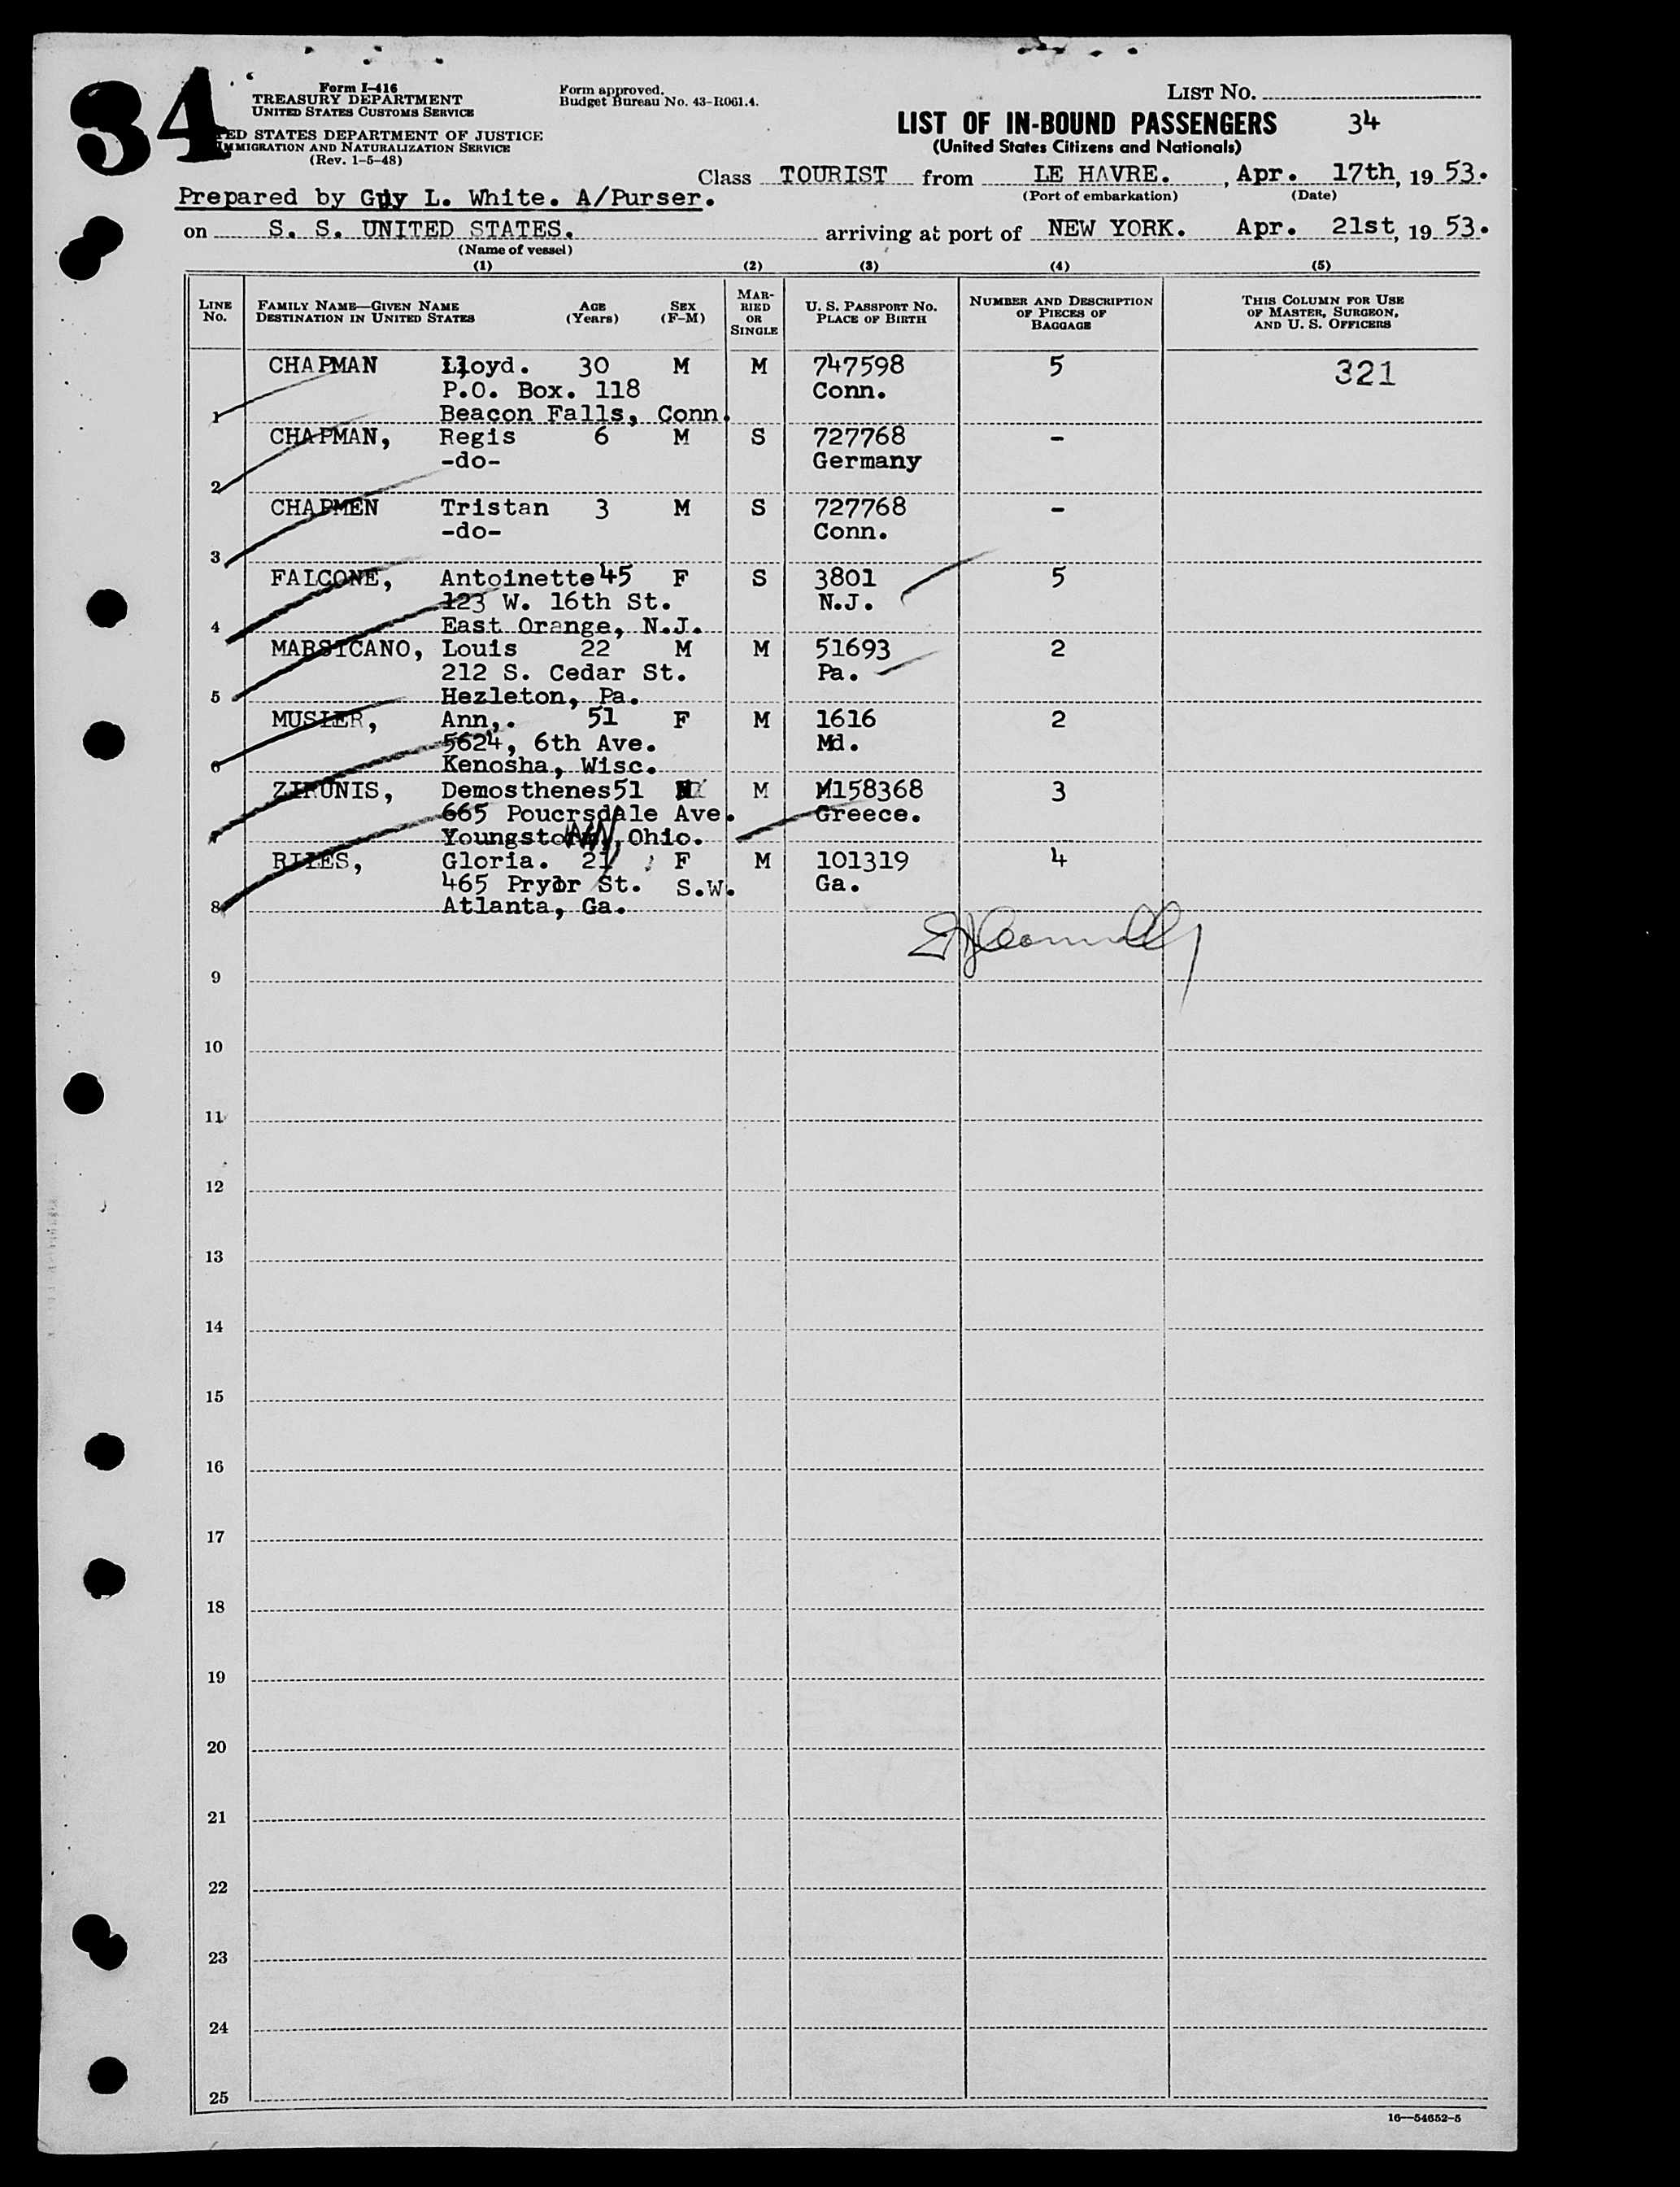 34
Form I-416
TREASURY DEPARTMENT
UNITED STATES CUSTOMS SERVICE
ED STATES DEPARTMENT OF JUSTICE
MMIGRATION AND NATURALIZATION SERVICE
(Rev. 1-5-48)
Form approved.
Budget Bureau No. 43-R061.4.
LIST NO.
LIST OF IN-BOUND PASSENGERS 34
(United States Citizens and Nationals)
Class TOURIST from LE HAVRE. , Apr. 17th, 19 53.
(Port of embarkation) (Date)
Prepared by Guy L. White. A/Purser.
on S. S. UNITED STATES. arriving at port of NEW YORK. Apr. 21st, 19 53.
(Name of vessel)
(1) (2) (3) (4) (5)
LINE No. FAMILY NAME—GIVEN NAME DESTINATION IN UNITED STATES AGE (Years) SEX (F-M) MAR-RIED OR SINGLE U. S. PASSPORT NO. PLACE OF BIRTH NUMBER AND DESCRIPTION OF PIECES OF BAGGAGE THIS COLUMN FOR USE OF MASTER, SURGEON, AND U. S. OFFICERS
CHAPMAN Lloyd. 30 M M 747598 5 321
P.O. Box. 118 Conn.
1 Beacon Falls, Conn.
CHAPMAN, Regis 6 M S 727768 -
-do- Germany
2
CHAPMEN Tristan 3 M S 727768 -
-do- Conn.
3
FALCONE, Antoinette 45 F S 3801 5
123 W. 16th St. N.J.
4 East Orange, N.J.
MARSICANO, Louis 22 M M 51693 2
212 S. Cedar St. Pa.
5 Hezleton, Pa.
MUSIER, Ann,. 51 F M 1616 2
5624, 6th Ave. Md.
6 Kenosha, Wisc.
ZIRUNIS, Demosthenes 51 M M158368 3
665 Poucrsdale Ave. Greece.
7 Ohio.
RILES, Gloria. 21 F M 101319 4
465 Pryor St. S.W. Ga.
8 Atlanta, Ga.
9
10
11
12
13
14
15
16
17
18
19
20
21
22
23
24
25
16—54652-5